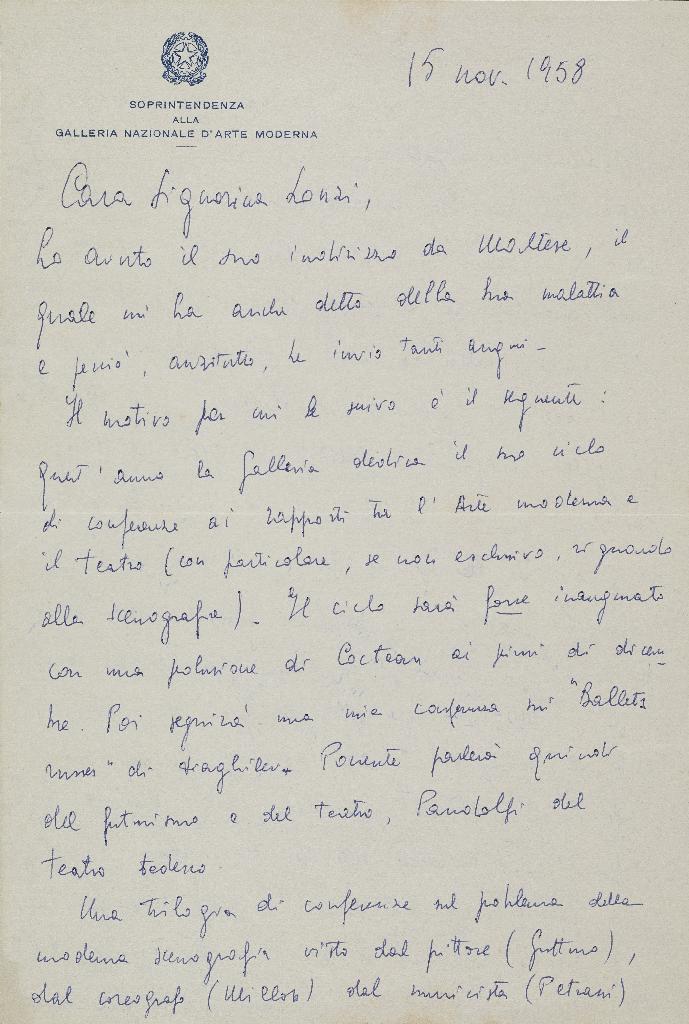 SOPRINTENDENZA
ALLA
GALLERIA NAZIONALE D'ARTE MODERNA
15 nov. 1958
Cara Signorina Lonzi,
ho avuto il suo indirizzo da Maltese, il
quale mi ha anche detto della Sua malattia
e perciò, anzitutto, Le invio tanti auguri -
Il motivo per cui Le scrivo è il seguente:
quest'anno la Galleria dedica il suo ciclo
di conferenze ai rapporti tra l'Arte moderna e
il teatro (con particolare, se non esclusivo, riguardo
alla scenografia). Il ciclo sarà forse inaugurato
con una prolusione di Cocteau ai primi di dicem
bre. Poi seguirà una mia conferenza sui "Ballets
russes" di Diaghilev. Ponente parlerà quindi
del futurismo e del teatro, Pandolfi del
teatro tedesco.
Una trilogia di conferenze sul problema della
moderna scenografia visto dal pittore (Guttuso),
dal coreografo (Milloss) dal musicista (Petrassi)